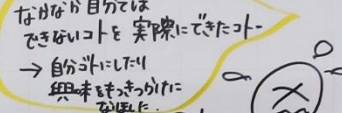 なかなか自分では
できないコトを実際にできたコトー
→ 自分ゴトにしたり
興味をもつきっかけに
なりました.